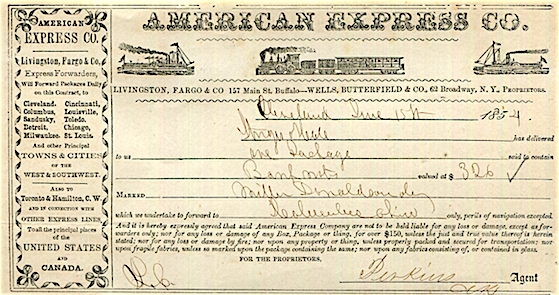 AMERICAN
EXPRESS CO.
Livingston, Fargo & Co.
Express Forwarders,
Will Forward Packages Daily
on this Contract, to
Cleveland. Cincinnati,
Columbus, Louisville,
Sandusky, Toledo.
Detroit, Chicago,
Milwaukee. St. Louis.
And other Principal
TOWNS & CITIES
OF THE
WEST & SOUTHWEST.
ALSO TO
Toronto & Hamilton, C. W.
AND IN CONNECTION WITH
OTHER EXPRESS LINES,
To all the principal places
of the
UNITED STATES
AND
CANADA.
AMERICAN EXPRESS CO.
LIVINGSTON, FARGO & CO 157 Main St. Buffalo—WELLS, BUTTERFIELD & CO., 62 Broadway, N. Y., PROPRIETORS.
Cleveland June 15th 1854.
has delivered
to us one Package said to contain
Bank notes valued at $ 326
MARKED Miller Donaldson
which we undertake to forward to Columbus Ohio only, perils of navigation excepted.
And it is hereby expressly agreed that said American Express Company are not to be held liable for any loss or damage, except as for-
warders only; nor for any loss or damage of any Box, Package or thing, for over $150, unless the just and true value thereof is herein
stated; nor for any loss or damage by fire; nor upon any property or thing, unless properly packed and secured for transportation; nor
upon fragile fabrics, unless so marked upon the package containing the same; nor upon any fabrics consisting of, or contained in glass.
FOR THE PROPRIETORS,
Perkins Agent